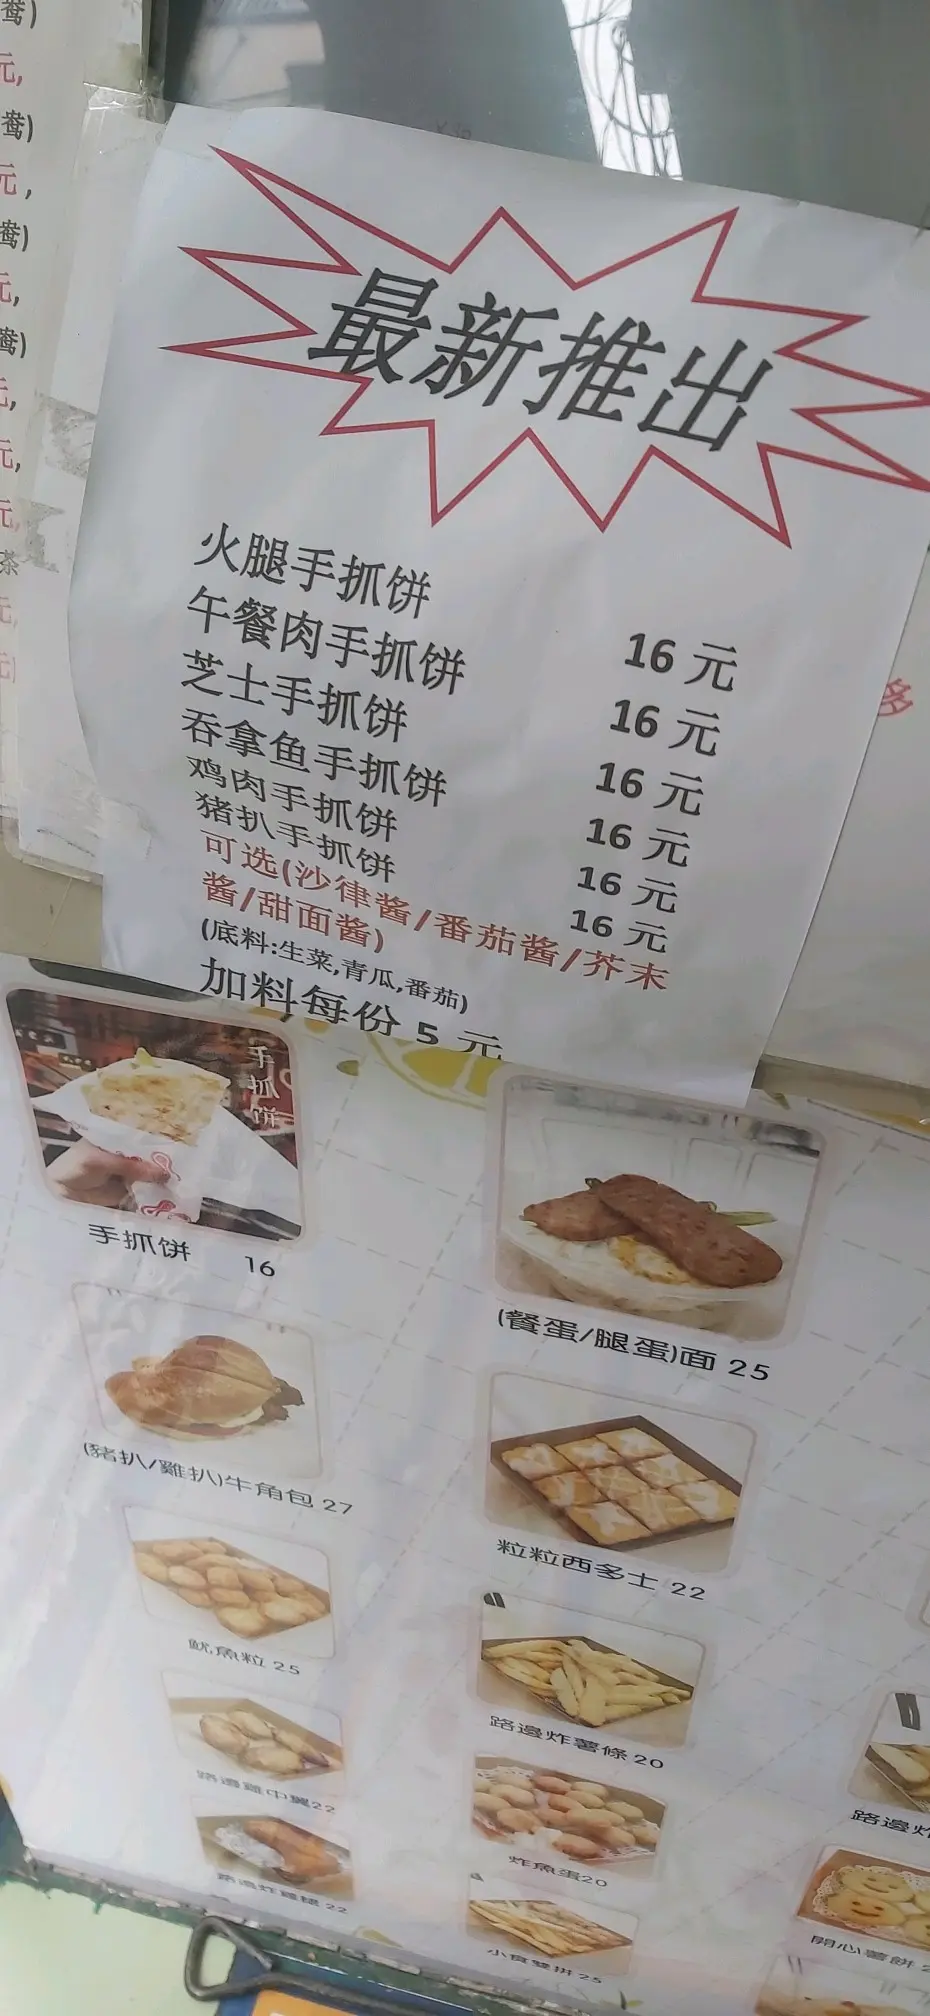 鸯)
元,
鸯)
元,
鸯)
元,
鸯)
元,
元,
元,
茶
元,
元
最新推出
火腿手抓饼 16 元
午餐肉手抓饼 16 元
芝士手抓饼 16 元
吞拿鱼手抓饼 16 元
鸡肉手抓饼 16 元
猪扒手抓饼 16 元
可选(沙律酱/番茄酱/芥末
酱/甜面酱)
(底料:生菜,青瓜,番茄)
加料每份 5 元
多
手抓饼
手抓饼 16
(餐蛋/腿蛋)面 25
(豬扒/雞扒)牛角包 27
粒粒西多士 22
魷魚粒 25
路邊炸薯條 20
路邊雞中翼22
路邊炸
炸魚蛋20
路邊炸雞腿 22
小食雙拼 25
開心薯餅 2